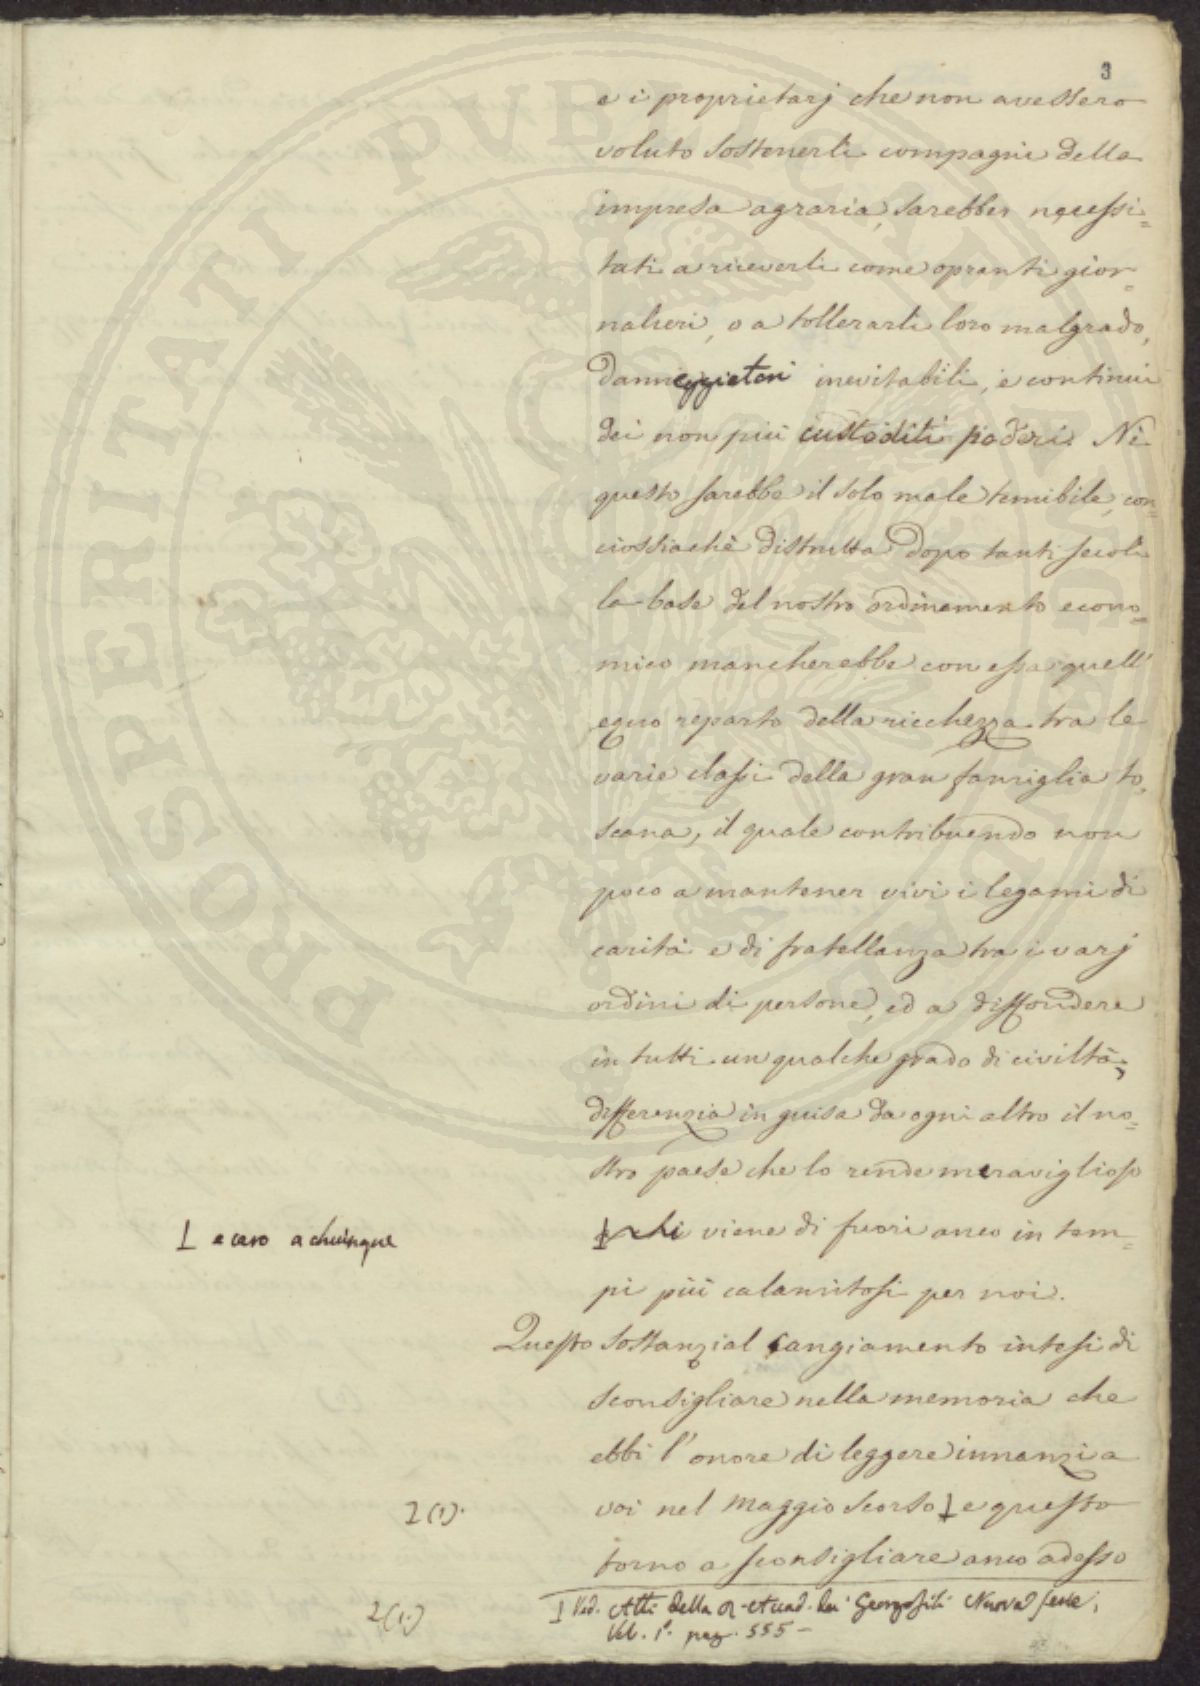 3
e i proprietarj che non avessero
voluto sostenerli compagni della
impresa agraria, sarebber necessi=
tati a riceverli come opranti gior=
nalieri, o a tollerarli loro malgrado,
danneggiatori inevitabili, e continui
dei non più custoditi poderi. Nè
questo sarebbe il solo male temibile, con=
ciossiachè distrutta dopo tanti secoli
la base del nostro ordinamento econo=
mico mancherebbe con essa quell'
equo reparto della ricchezza tra le
varie classi della gran famiglia to=
scana, il quale contribuendo non
poco a mantener vivi i legami di
carità e di fratellanza tra i varj
ordini di persone, ed a diffondere
in tutti un qualche grado di civiltà,
differenzia in guisa da ogni altro il no=
stro paese che lo rende meraviglioso
⊥ e caro a chiunque
⊥ chi viene di fuori anco in tem=
pi più calamitosi per noi.
Questo sostanzial cangiamento intesi di
sconsigliare nella memoria che
ebbi l'onore di leggere innanzi a
voi nel Maggio scorso ⊥ e questo
2(1).
torno a sconsigliare anco adesso
2(1.)
⊥ Ved. Atti della R. Accad. dei Georgofili Nuova Serie,
Vol. 1°. pag. 555 –
PROSPERITATI PUBLICAE AUGENDAE